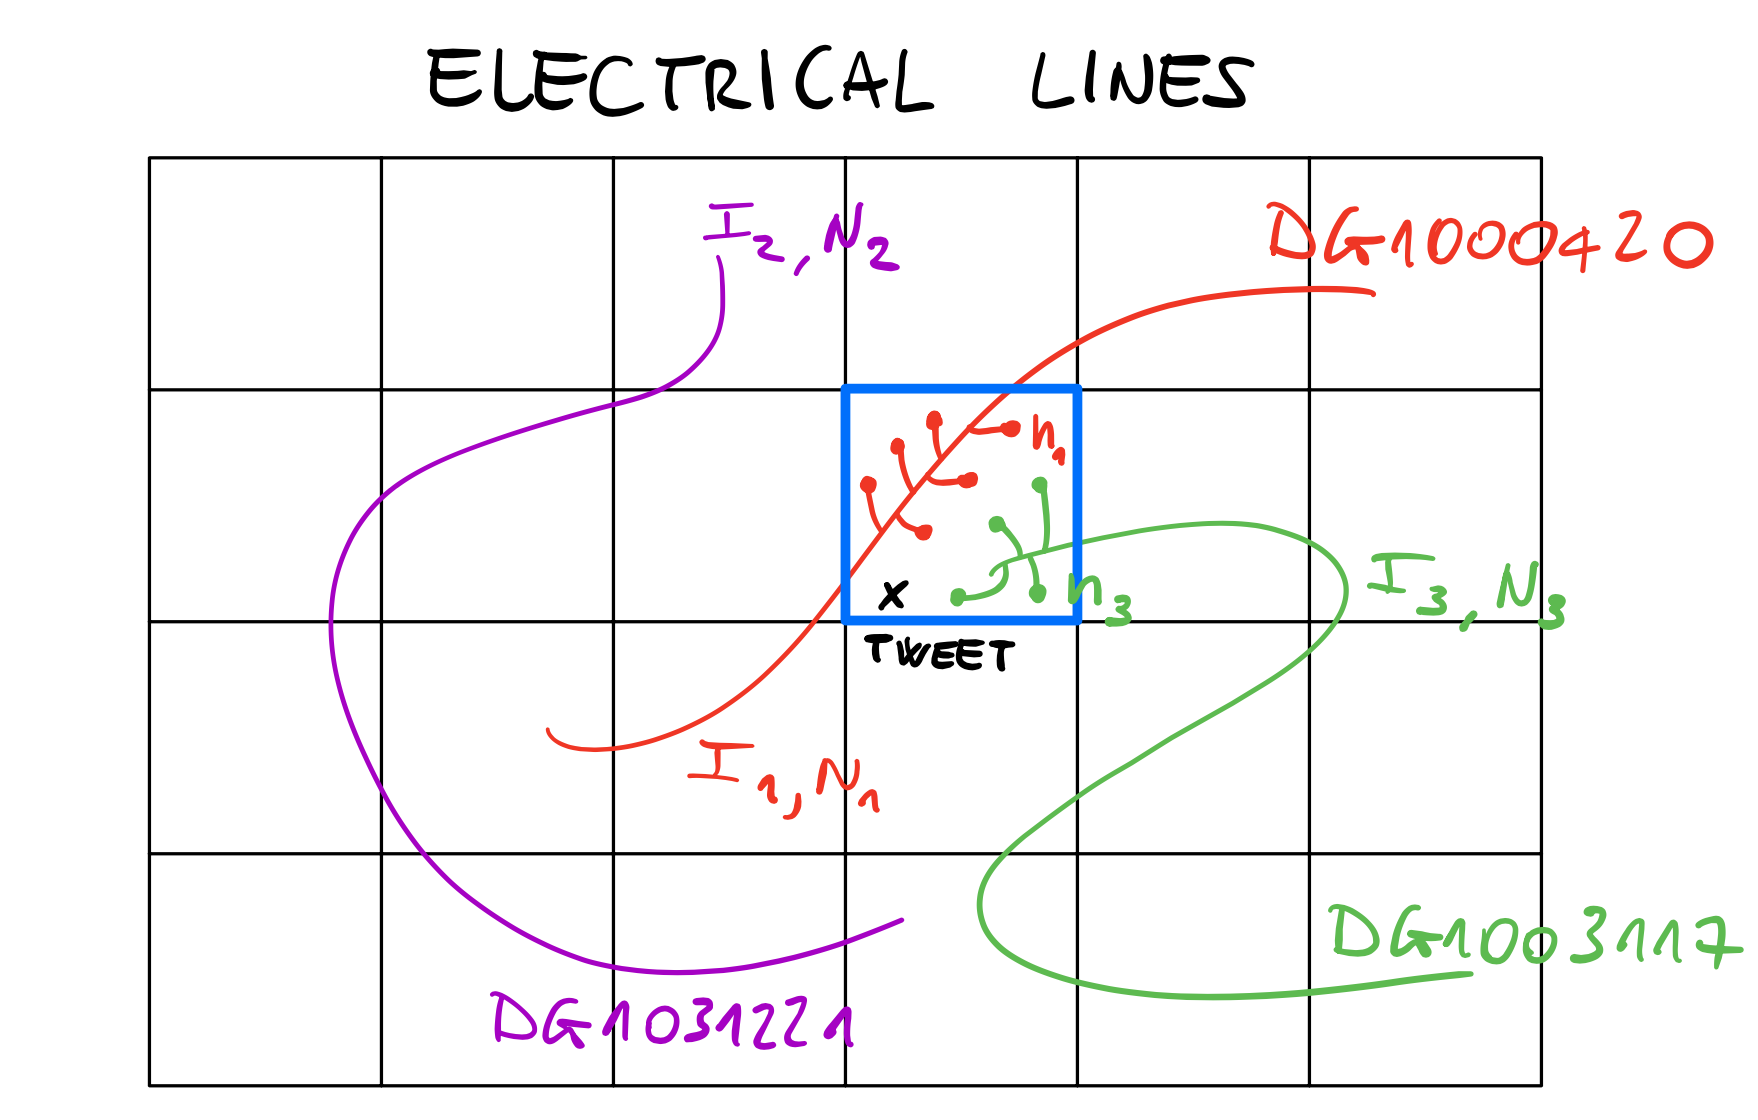 ELECTRICAL LINES
I₂, N₂
DG1000420
n₁
I₃, N₃
n₃
X
TWEET
I₁, N₁
DG1003117
DG1031221